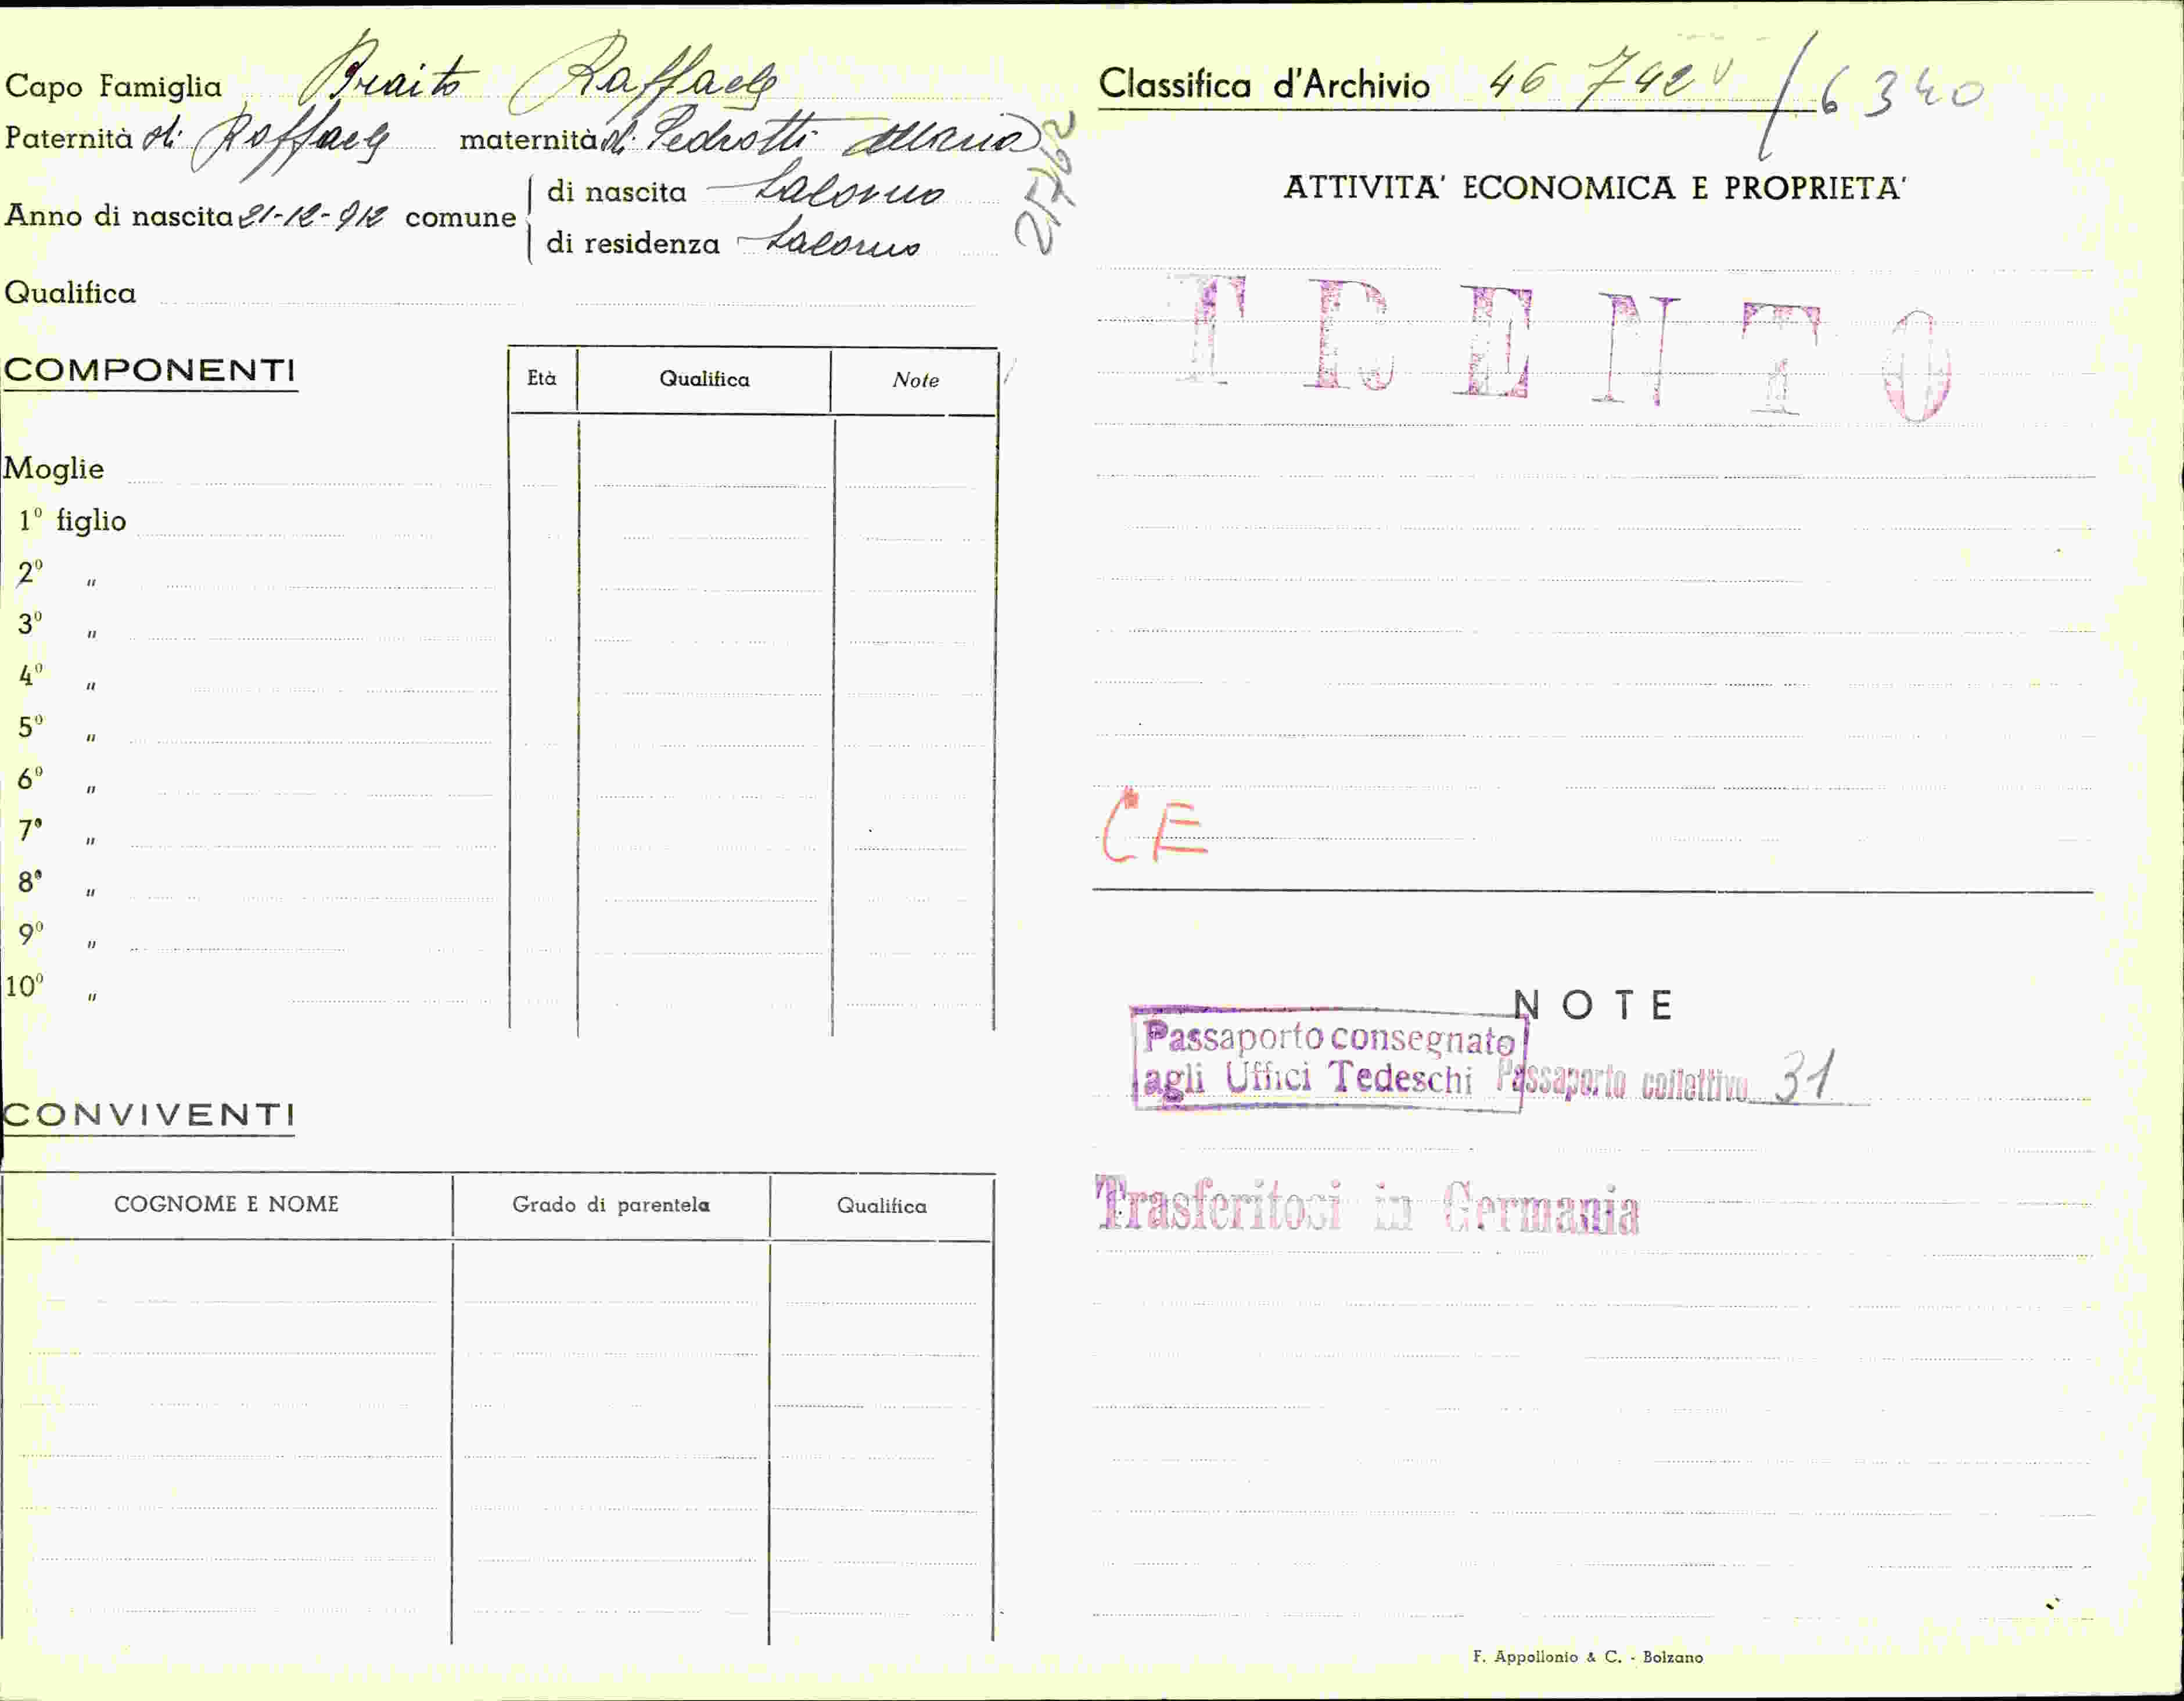 Capo Famiglia Braito Raffaele
Paternità di Raffaele maternità di Pedrotti Maria
Anno di nascita 21-12-912 comune
di nascita Salorno
di residenza Salorno
21762
Qualifica
COMPONENTI
Età Qualifica Note
Moglie
1º figlio
2º "
3º "
4º "
5º "
6º "
7º "
8º "
9º "
10º "
CONVIVENTI
COGNOME E NOME Grado di parentela Qualifica
Classifica d'Archivio 46742 / 6340
ATTIVITA' ECONOMICA E PROPRIETA'
TRENTO
CE
NOTE
Passaporto consegnato
agli Uffici Tedeschi Passaporto collettivo 31
Trasferitosi in Germania
F. Appollonio & C. - Bolzano